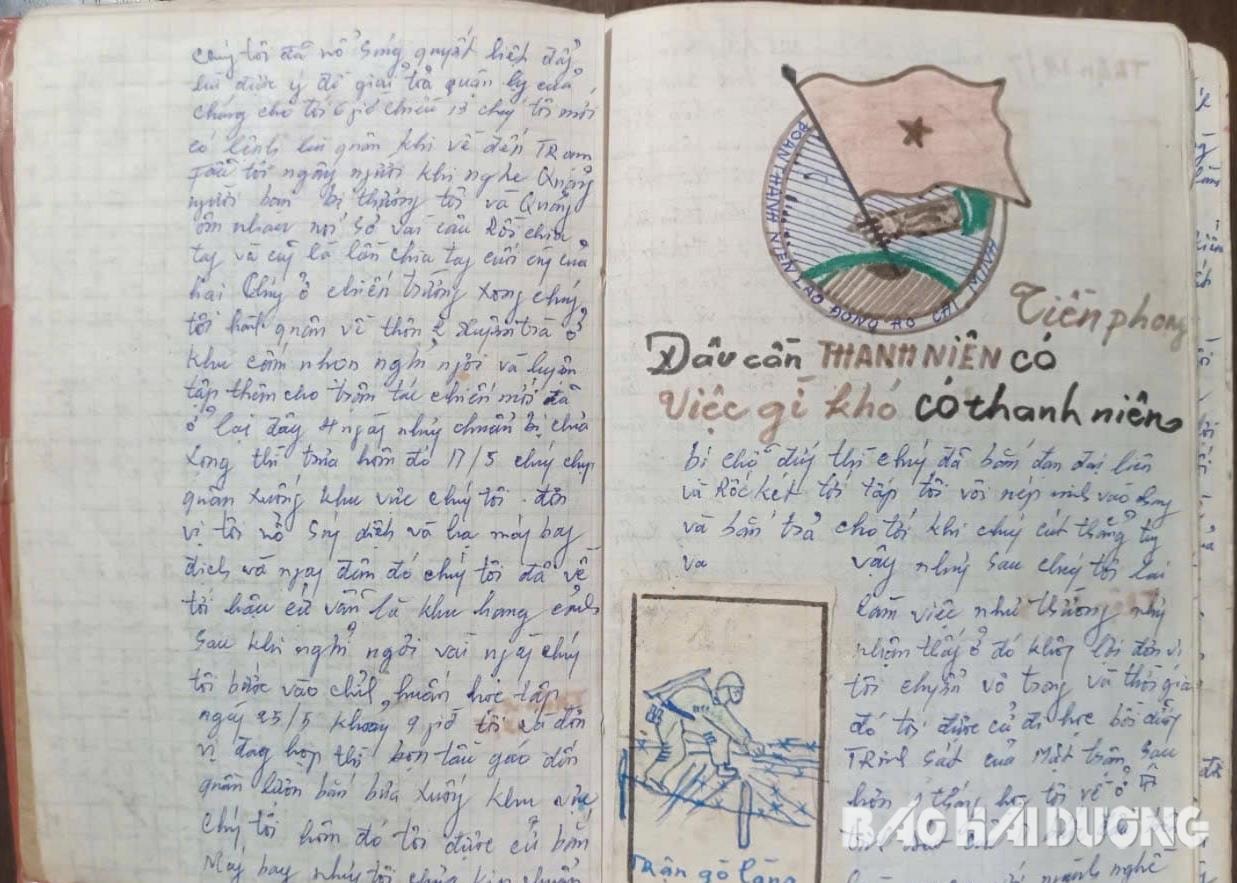 chúng tôi đã nổ súng quyết liệt đẩy
lùi được ý đồ giải tỏa quận lỵ của
chúng cho tới 6 giờ chiều 13 chúng tôi mới
có lệnh lui quân khi về đến Tram
Tấu tôi ngây người khi nghe Quảng
người bạn bị thương tôi và Quảng
ôm nhau nói sơ vài câu rồi chia
tay và cũng là lần chia tay cuối cùng của
hai chúng ở chiến trường xong chúng
tôi hành quân về thôn 2 Xuân trà ở
khu cấm nhơn nghỉ ngơi và luyện
tập thêm cho trận tác chiến mới đã
ở lại đây 4 ngày nhưng chuẩn bị chưa
xong thì trưa hôm đó 17/5 chúng chụp
quân xuống khu vực chúng tôi. đơn
vị tôi nổ súng địch và hạ máy bay
địch và ngay đêm đó chúng tôi đã về
tới hậu cứ vẫn là khu hang
sau khi nghỉ ngơi vài ngày chúng
tôi bước vào chỉnh huấn học tập
ngày 25/5 khoảng 9 giờ tôi và đơn
vị đang họp thì bọn tàu gáo đến
quần lượn bắn bừa xuống khu vực
chúng tôi hôm đó tôi được cử bắn
Máy bay nhưng tôi chưa kịp chuẩn
ĐOÀN THANH NIÊN LAO ĐỘNG HỒ CHÍ MINH
Tiền phong
Đâu cần THANH NIÊN có
Việc gì khó có thanh niên
bị chỗ đứng thì chúng đã bắn đạn đại liên
và Rốc két tới tấp tôi vội nép mình vào
và bắn trả cho tới khi chúng cút thẳng tuy
va
vậy nhưng sau chúng tôi lại
làm việc như thường nhưng
nhận thấy ở đó không lợi đơn vị
tôi chuyển vô trong và thời gian
đó tôi được cử đi học bồi dưỡng
Trinh sát của Mặt trận sau
hơn 1 tháng học tôi về ở
Trận gò
BÁO HẢI DƯƠNG